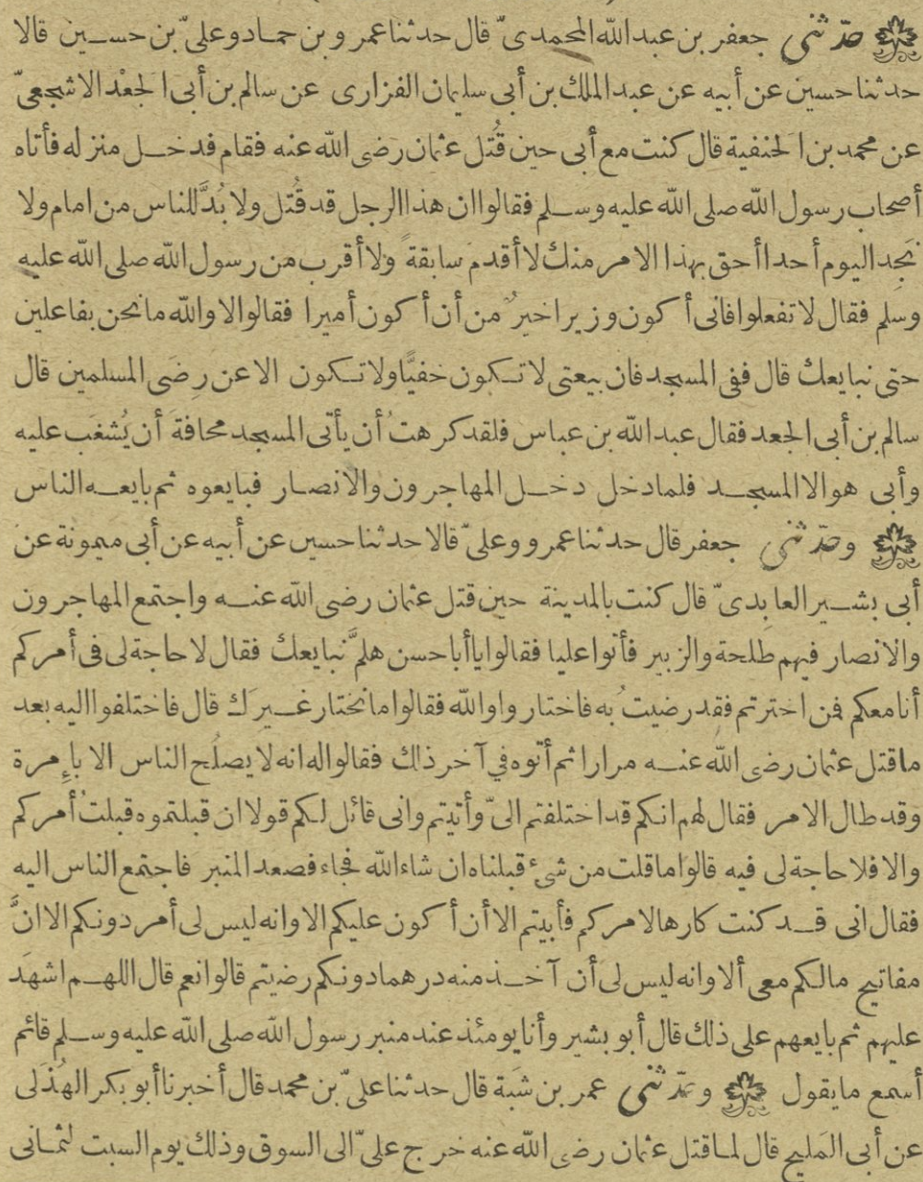 حدّثني جعفر بن عبد الله المحمدىّ قال حدثنا عمرو بن حماد وعلىّ بن حسين قالا
حدثنا حسين عن أبيه عن عبد الملك بن أبى سليمان الفزارى عن سالم بن أبى الجعْد الاشجعىّ
عن محمد بن الحنفية قال كنت مع أبى حين قُتل عثمان رضى الله عنه فقام فدخل منزله فأتاه
أصحاب رسول الله صلى الله عليه وسلم فقالوا ان هذا الرجل قد قُتل ولا بُدَّ للناس من امام ولا
نجد اليوم أحدا أحق بهذا الامر منك لا أقدم سابقةً ولا أقرب من رسول الله صلى الله عليه
وسلم فقال لا تفعلوا فانى أكون وزيرا خيرٌ من أن أكون أميرا فقالوا لا والله ما نحن بفاعلين
حتى نبايعك قال ففى المسجد فان بيعتى لا تكون خفيًّا ولا تكون الا عن رضَى المسلمين قال
سالم بن أبى الجعد فقال عبد الله بن عباس فلقد كرهتُ أن يأتى المسجد مخافةَ أن يُشغَب عليه
وأبى هو الا المسجد فلما دخل دخل المهاجرون والانصار فبايعوه ثم بايعه الناس
وحدّثني جعفر قال حدثنا عمرو وعلىّ قالا حدثنا حسين عن أبيه عن أبى ميمونة عن
أبى بشير العابدىّ قال كنت بالمدينة حين قتل عثمان رضى الله عنه واجتمع المهاجرون
والانصار فيهم طلحة والزبير فأتوا عليا فقالوا يا أبا حسن هلمَّ نبايعك فقال لا حاجة لى فى أمركم
أنا معكم فمن اخترتم فقد رضيتُ به فاختاروا والله فقالوا ما نختار غيرَك قال فاختلفوا اليه بعد
ما قتل عثمان رضى الله عنه مرارا ثم أتوه في آخر ذلك فقالوا له انه لا يصلُح الناس الا بإِمرة
وقد طال الامر فقال لهم انكم قد اختلفتم الىّ وأتيتم وانى قائل لكم قولا ان قبلتموه قبلتُ أمركم
والا فلا حاجة لى فيه قالوا ما قلت من شئ قبلناه ان شاء الله فجاء فصعد المنبر فاجتمع الناس اليه
فقال انى قد كنت كارها لامركم فأبيتم الا أن أكون عليكم الا وانه ليس لى أمر دونكم الا انَّ
مفاتيح مالكم معى ألا وانه ليس لى أن آخذ منه درهما دونكم رضيتم قالوا نعم قال اللهم اشهَد
عليهم ثم بايعهم على ذلك قال أبو بشير وأنا يومئذ عند منبر رسول الله صلى الله عليه وسلم قائم
أسمع ما يقول وحدّثني عمر بن شَبة قال حدثنا علىّ بن محمد قال أخبرنا أبو بكر الهُذَلى
عن أبى المَليح قال لما قتل عثمان رضى الله عنه خرج علىّ الى السوق وذلك يوم السبت لثمانى